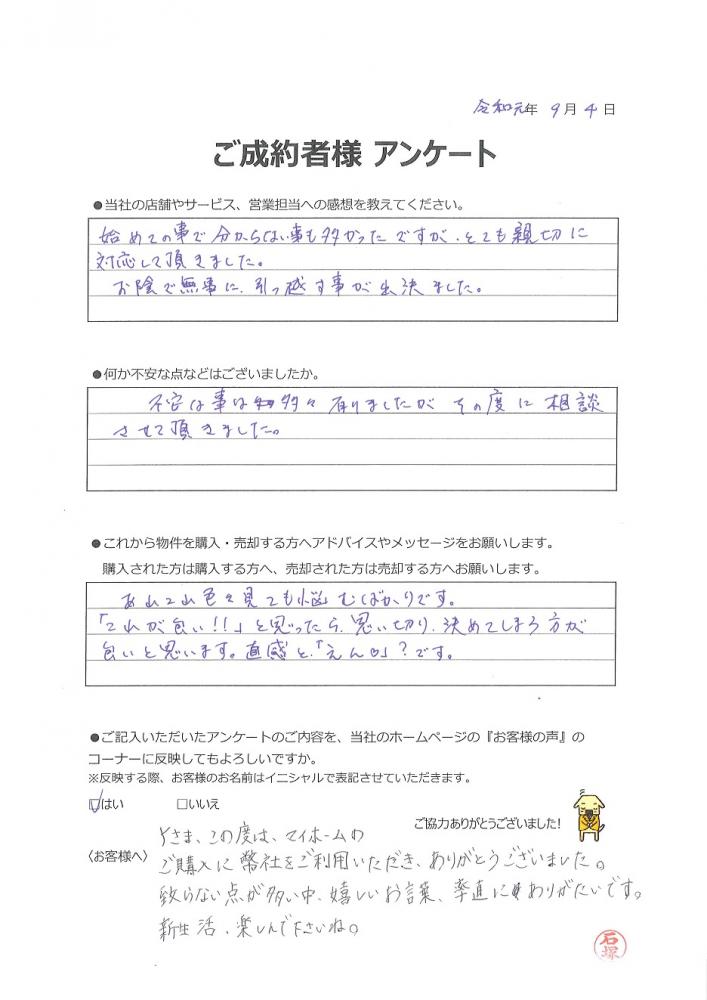 令和元年 9月 4日
ご成約者様 アンケート
●当社の店舗やサービス、営業担当への感想を教えてください。
始めての事で分からない事も多かったですが、とても親切に
対応して頂きました。
お陰で無事に、引っ越す事が出決ました。
●何か不安な点などはございましたか。
不安な事は多々有りましたが その度に相談
させて頂きました。
●これから物件を購入・売却する方へアドバイスやメッセージをお願いします。
購入された方は購入する方へ、売却された方は売却する方へお願いします。
あれこれ色々見ても悩むばかりです。
「これが良い!!」と思ったら、思い切り、決めてしまう方が
良いと思います。直感と、「えん」?です。
●ご記入いただいたアンケートのご内容を、当社のホームページの『お客様の声』の
コーナーに反映してもよろしいですか。
※反映する際、お客様のお名前はイニシャルで表記させていただきます。
☑はい □いいえ
ご協力ありがとうございました!
〈お客様へ〉
Yさま、この度は、マイホームの
ご購入に弊社をご利用いただき、ありがとうございました。
至らない点が多い中、嬉しいお言葉、率直にありがたいです。
新生活、楽しんで下さいね。
石塚